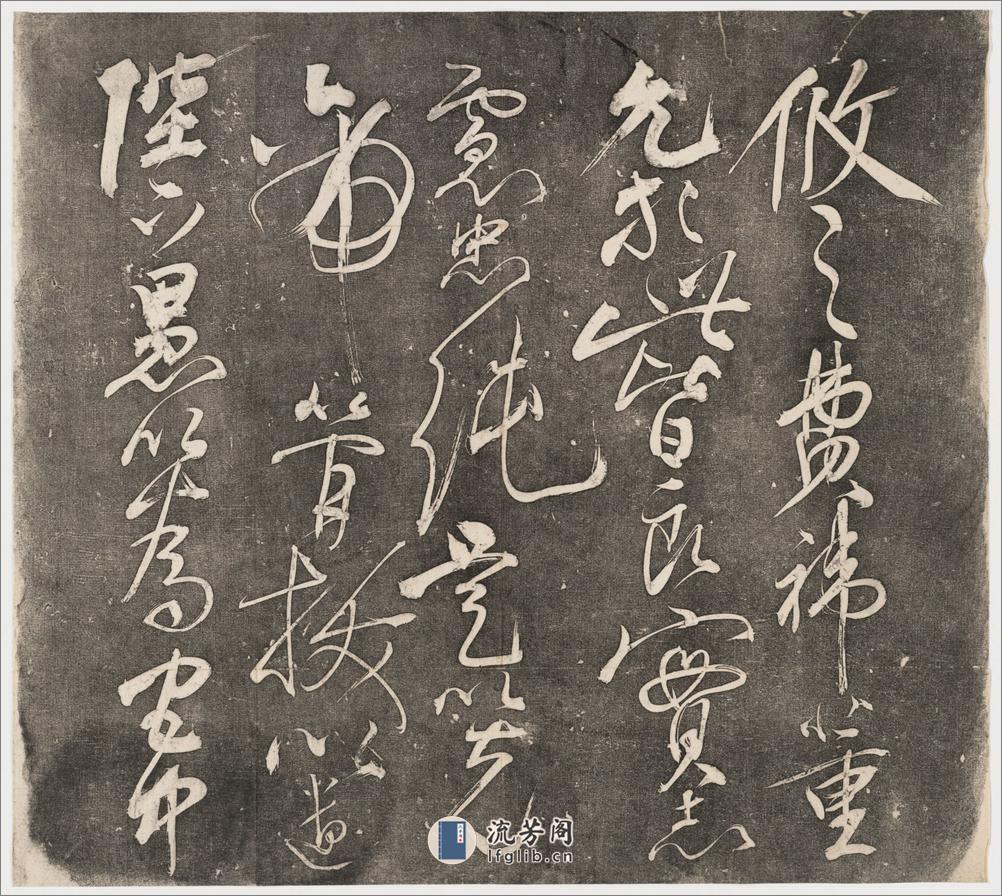 攸之費禕董
允等此皆良實志
慮忠純是以先
帝簡拔以遺
陛下愚以為宮中
流芳阁
lfglib.cn